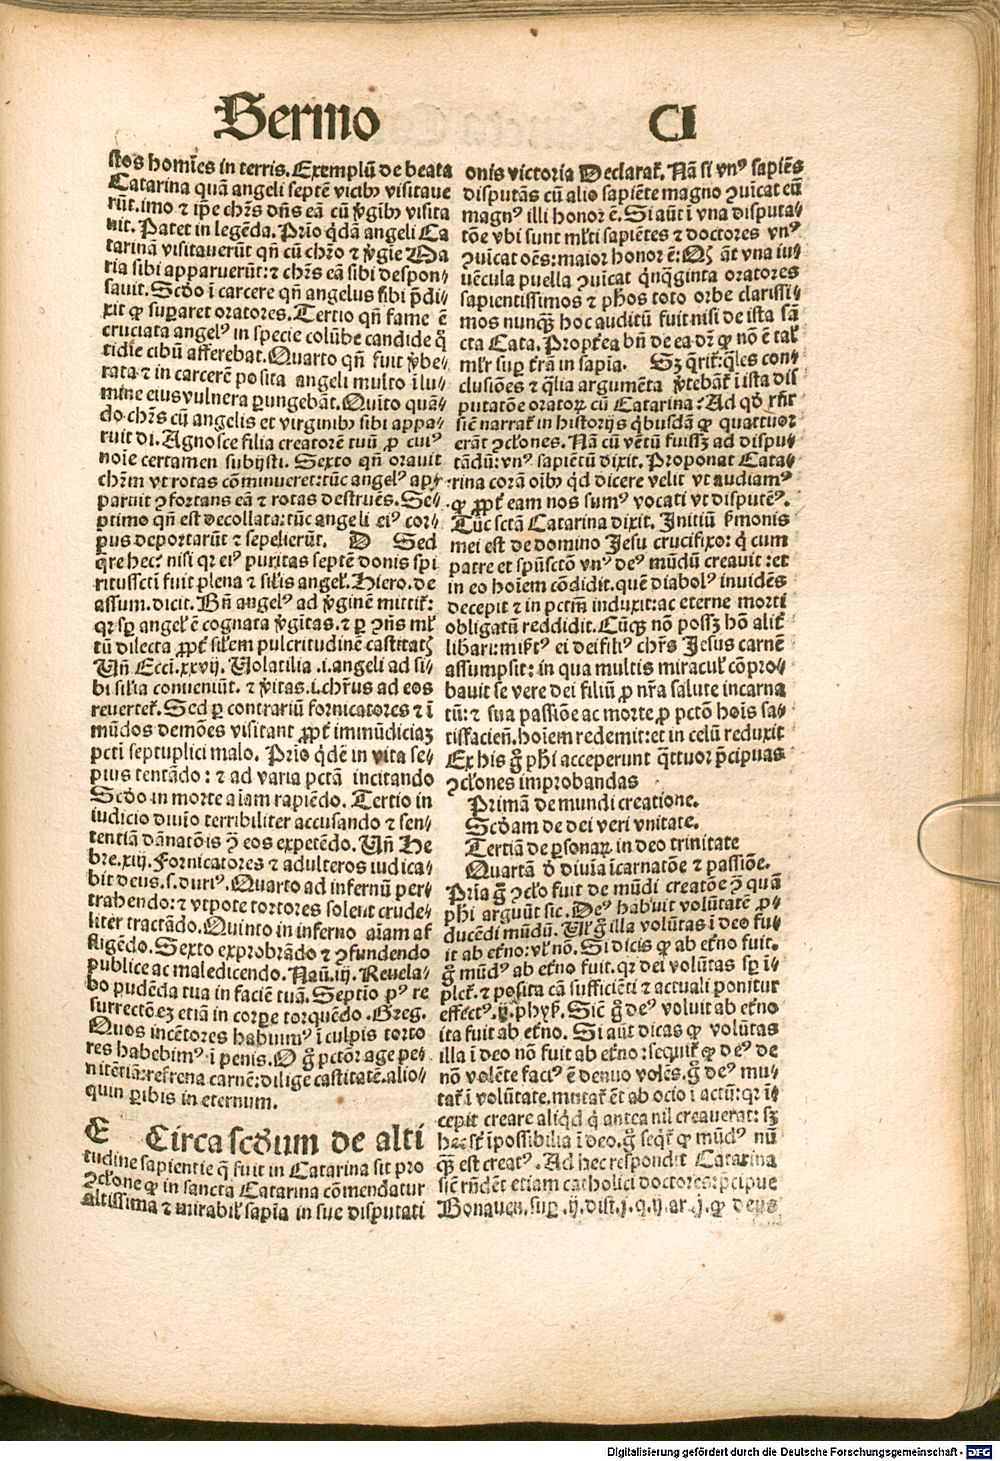 Sermo CI
stos homīes in terris. Exemplū de beata
Catarina quā angeli septē vicibꝰ visitaue
rūt. imo ⁊ ip̄e chrs̄ dn̄s eā cū ꝟgīibꝰ visita
uit. Patet in legēda. Prīo qͥdā angeli Ca
tarinā visitauerūt qn̄ cū chrō ⁊ ꝟgīe Ma
ria sibi apparuerūt: ⁊ chrs̄ eā sibi despon⸗
sauit. Scd̄o ī carcere qn̄ angelus sibi p̄di⸗
xit ꝙ suꝑaret oratores. Tertio qn̄ fame ē
cruciata angelꝰ in specie colūbe candide q̄
tidie cibū afferebat. Quarto qn̄ fuit ꝟbe⸗
rata ⁊ in carcerē posita angeli multo īlu⸗
mine eius vulnera ꝑungebāt. Quīto quā⸗
do chrs̄ cū angelis et virginibꝰ sibi appa⸗
ruit di. Agnosce filia creatorē tuū ꝓ cuiꝰ
noīe certamen subijsti. Sexto qn̄ orauit
chrm̄ vt rotas cōminueret: tūc angelꝰ ap⸗
paruit ꝯfortans eā ⁊ rotas destruēs. Se⸗
ptimo qn̄ est decollata: tūc angeli eiꝰ cor⸗
pus deportarūt ⁊ sepelierūt. D Sed
q̄re hec: nisi qꝛ eiꝰ puritas septē donis spi
ritussctī fuit plena ⁊ silis angel̕. Hiero. de
assum. dicit. Bn̄ angelꝰ ad ꝟginē mittit̕:
qꝛ sꝑ angel̕ ē cognata ꝟgītas. ⁊ ꝑ ꝯn̄s ml̕
tū dilecta ꝓpt̕ silem pulcritudinē castitatꝭ
Vn̄ Ecci. xxvij. Volatilia .i. angeli ad si⸗
bi silia conueniūt. ⁊ ꝟitas .i. chrūs ad eos
reuertet̕. Sed ꝑ contrariū fornicatores ⁊ ī
mūdos demōes visitant ꝓpt̕ immūdiciaꝫ
pctī septuplici malo. Prīo qͥdē in vita se⸗
pius tentādo: ⁊ ad varia pctā incitando
Scd̄o in morte aīam rapiēdo. Tertio in
iudicio diuīo terribiliter accusando ⁊ sen⸗
tentiā dānatōis ī eos expetēdo. Vn̄ He
bre. xiij. Fornicatores ⁊ adulteros iudica⸗
bit deus. s. duriꝰ. Quarto ad infernū per⸗
trahendo: ⁊ vtpote tortores solent crude⸗
liter tractādo. Quinto in inferno aīam af
fligēdo. Sexto exprobrādo ⁊ ꝯfundendo
publice ac maledicendo. Naū. iij. Reuela⸗
bo pudēda tua in faciē tuā. Septīo pꝰ re
surrectōeꝫ etiā in corꝑe torquēdo. Greg.
Quos incētores habuimꝰ ī culpis torto
res habebimꝰ ī penis. O g̊ pctōr age pe⸗
nitētiā: refrena carnē: dilige castitatē. alio⸗
quin ꝑibis in eternum.
E Circa scd̄um de alti
tudine sapientie q̄ fuit in Catarina sit pro
ꝯclone ꝙ in sancta Catarina cōmendatur
altissima ⁊ mirabil̕ sapīa in sue disputati
onis victoria Declarat̕. Nā si vnꝰ sapiēs
disputās cū alio sapiēte magno ꝯuīcat eū
magnꝰ illi honor ē. Si aūt ī vna disputa⸗
tōe vbi sunt ml̕ti sapiētes ⁊ doctores vnꝰ
ꝯuīcat oēs: maior honor ē: Qꝫ āt vna iu⸗
uēcula puella ꝯuīcat qͥnq̄ginta oratores
sapientissimos ⁊ ph̄os toto orbe clarissi⸗
mos nunq̄ꝫ hoc auditū fuit nisi de ista sā
cta Cata. Propt̕ea bn̄ de ea dr̄ ꝙ nō ē tal̕
ml̕r suꝑ t̕rā in sapīa. Sꝫ q̄rit̕: q̄les con⸗
clusiōes ⁊ q̄lia argumēta ꝟtebāt̕ ī ista dis
putatōe oratoꝝ cū Catarina? Ad qd̄ rn̄r
sic̄ narrat̕ in historijs qͥbusdā ꝙ quattuor
erāt ꝯclones. Nā cū vētū fuissꝫ ad dispu⸗
tādū: vnꝰ sapiētū dixit. Proponat Cata⸗
rina corā oībꝰ qd dicere velit vt audiamꝰ
ꝙ ꝓpt̕ eam nos sumꝰ vocati vt disputēꝰ.
Tūc sctā Catarina dixit. Initiū s̄monis
mei est de domino Jesu crucifixo: q̄ cum
patre et spūsctō vnꝰ deꝰ mūdū creauit: et
in eo hoīem cōdidit. quē diabolꝰ inuidēs
decepit ⁊ in pctm̄ induxit: ac eterne morti
obligatū reddidit. Cūqꝫ nō possꝫ hō alit̕
libari: misit̕ ei dei filiꝰ chrs̄ Jesus carnē
assumpsit: in qua multis miracul̕ cōpro⸗
bauit se vere dei filiū ꝓ nr̄a salute incarna
tū: ⁊ sua passiōe ac morte ꝓ pctō hoīs sa⸗
tisfaciēn. hoīem redemit: et in celū reduxit
Ex his g̊ ph̄i acceperunt q̄ttuor p̄cipuas
ꝯclones improbandas
Primā de mundi creatione.
Scd̄am de dei veri vnitate.
Tertiā de ꝑsonaꝝ in deo trinitate
Quartā d̄ diuīa īcarnatōe ⁊ passiōe.
Prīa g̊ ꝯclo fuit de mūdi creatōe ī quā
ph̄i arguūt sic. Deꝰ habuit volūtatē ꝓ⸗
ducēdi mūdū. Vl̕ g̊ illa volūtas ī deo fu⸗
it ab et̕no: vl̕ nō. Si dicis ꝙ ab et̕no fuit.
g̊ mūdꝰ ab et̕no fuit. qꝛ dei volūtas sꝑ ī⸗
plet̕. ⁊ posita cā sufficiēti ⁊ actuali ponitur
effectꝰ. ij. phẏs̕. Sic̄ g̊ deꝰ voluit ab et̕no
ita fuit ab et̕no. Si aūt dicas ꝙ volūtas
illa ī deo nō fuit ab et̕no: sequit̕ ꝙ deꝰ de
nō volēte faciꝰ ē denuo volēs. g̊ deꝰ mu⸗
tat̕ ī volūtate. mutat̕ ēt ab ocio ī actū: qꝛ ī⸗
cepit creare aliqd̄ qͥ antea nil creauerat: sꝫ
hec st̕ īpossibilia ī deo. g̊ seqt̕ ꝙ mūdꝰ nū
q̄ꝫ est creatꝰ. Ad hec respondit Catarina
sic̄ rn̄dēt etiam catholici doctores: p̄cipue
Bonauen. suꝑ .ij. dist. j. q. ij. ar. j. ꝙ deus
Digitalisierung gefördert durch die Deutsche Forschungsgemeinschaft - DFG